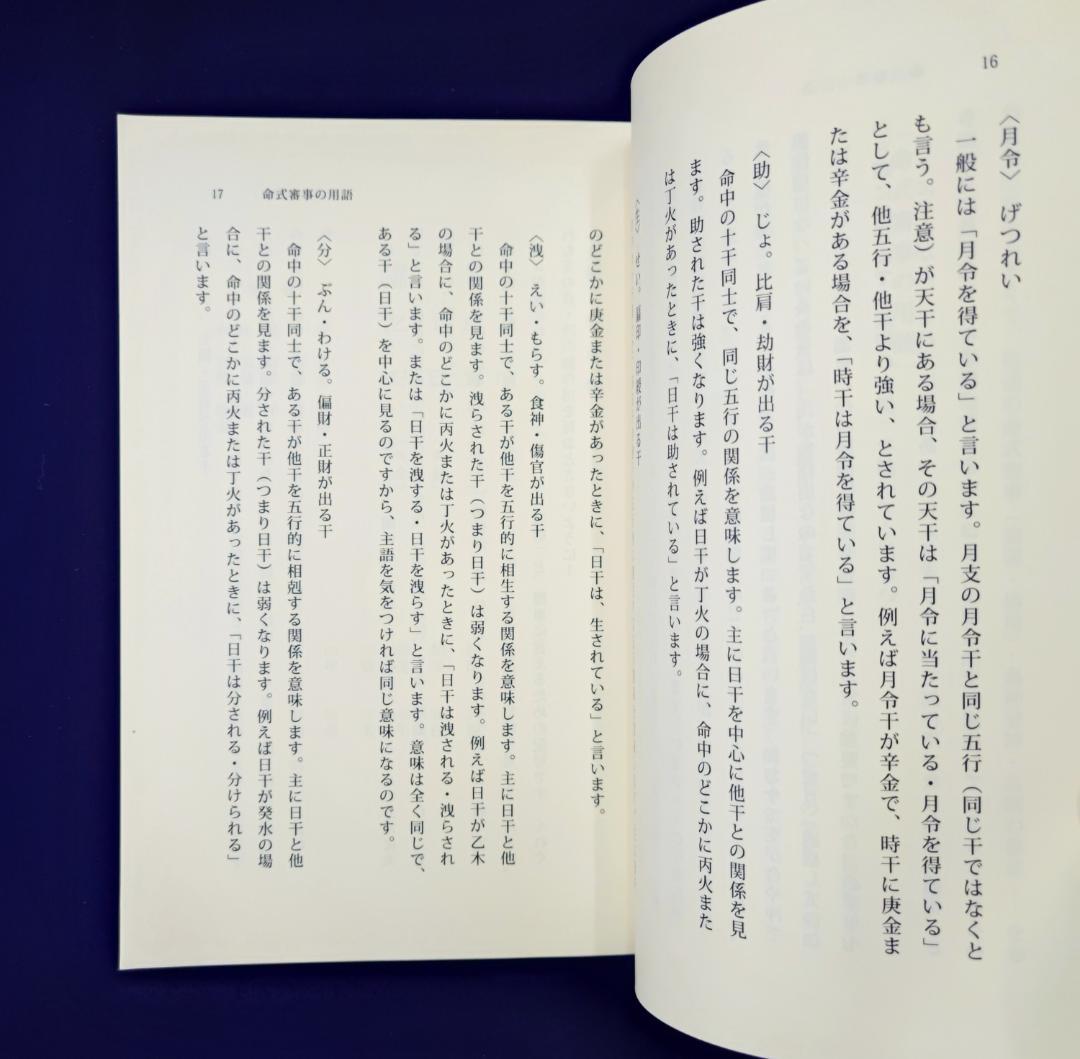 16
〈月令〉 げつれい
一般には「月令を得ている」と言います。月支の月令干と同じ五行（同じ干ではなくと
も言う。注意）が天干にある場合、その天干は「月令に当たっている・月令を得ている」
として、他五行・他干より強い、とされています。例えば月令干が辛金で、時干に庚金ま
たは辛金がある場合を、「時干は月令を得ている」と言います。
〈助〉 じょ。比肩・劫財が出る干
命中の十干同士で、同じ五行の関係を意味します。主に日干を中心に他干との関係を見
ます。助された干は強くなります。例えば日干が丁火の場合に、命中のどこかに丙火また
は丁火があったときに、「日干は助されている」と言います。
せい。偏印・印綬が出る干
17 命式審事の用語
のどこかに庚金または辛金があったときに、「日干は、生されている」と言います。
〈洩〉 えい・もらす。食神・傷官が出る干
命中の十干同士で、ある干が他干を五行的に相生する関係を意味します。主に日干と他
干との関係を見ます。洩らされた干（つまり日干）は弱くなります。例えば日干が乙木
の場合に、命中のどこかに丙火または丁火があったときに、「日干は洩される・洩らされ
る」と言います。または「日干を洩する・日干を洩らす」と言います。意味は全く同じで、
ある干（日干）を中心に見るのですから、主語を気をつければ同じ意味になるのです。
〈分〉 ぶん・わける。偏財・正財が出る干
命中の十干同士で、ある干が他干を五行的に相剋する関係を意味します。主に日干と他
干との関係を見ます。分された干（つまり日干）は弱くなります。例えば日干が癸水の場
合に、命中のどこかに丙火または丁火があったときに、「日干は分される・分けられる」
と言います。